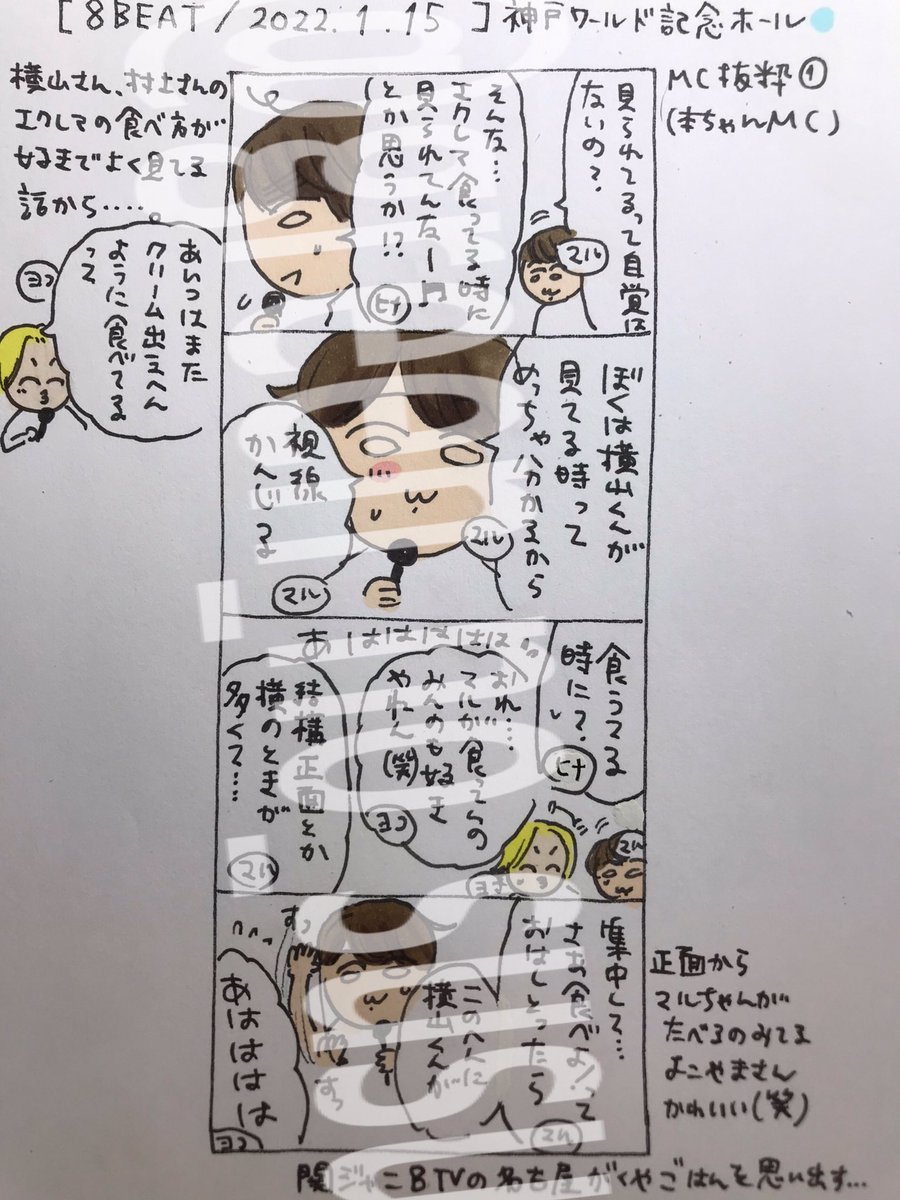 [8BEAT/2022.1.15]神戸ワールド記念ホール
MC抜粋①
(本ちゃんMC)
横山さん、村上さんの
エクレアの食べ方が
好きでよく見てる
話から....。
あいつはまた
クリーム出えへん
ように食べてる
って
ヨコ
見られてるって自覚は
ないの?
マル
そんな...
エクレア食ってる時に
見られてんなー♬
とか思うか!?
ヒナ
ぼくは横山くんが
見てる時って
めっちゃ分かるから
マル
視線
かんじる
マル
食うてる
時に?
ヒナ
あはははははは
おれ...
マルが食ってんの
みんのも好き
やねん(笑)
ヨコ
結構正面とか
横のときが
多くて...
マル
ヨコ
マル
集中して...
さあ食べよ!って
おはしとったら
マル
ここのへんに
横山くんが
すっ
あはははは
ヨコ
正面から
マルちゃんが
たべるのみてる
よこやまさん
かわいい(笑)
関ジャニ8TVの名古屋がくやごはんを思い出す...